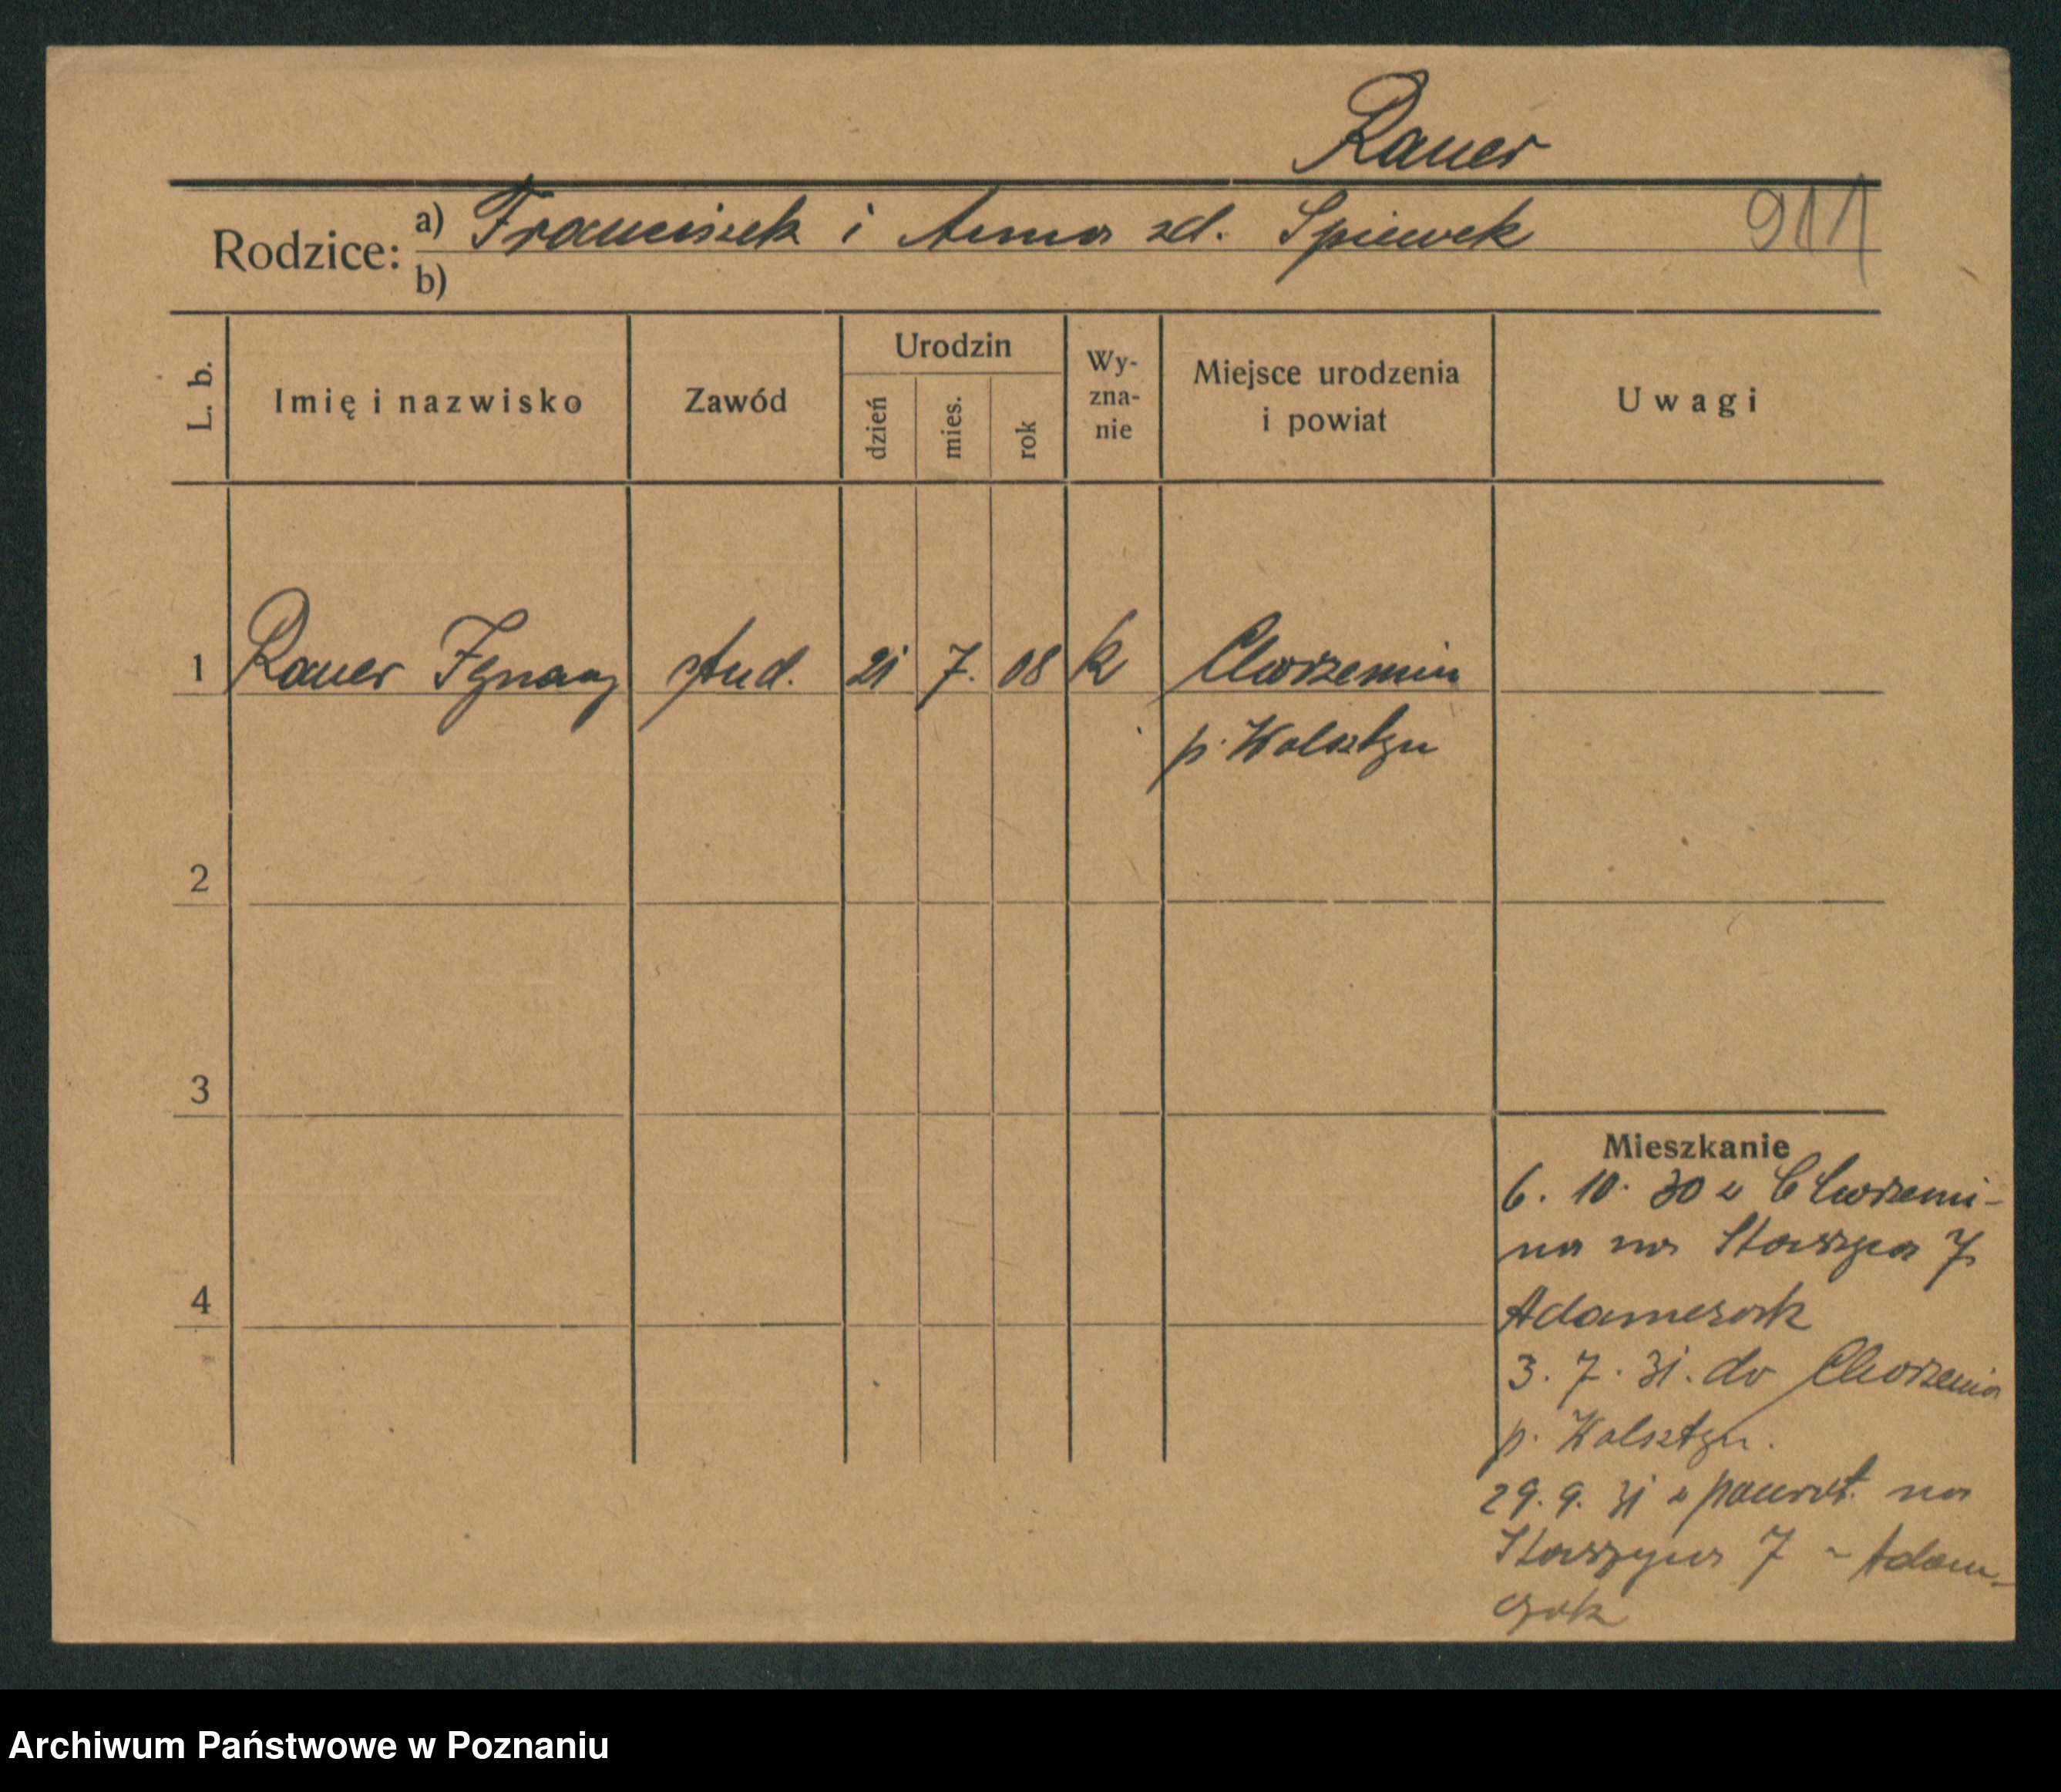 Rauer
Rodzice: a) Franciszek i Anna zd. Spiewek 911
b)
L. b. Imię i nazwisko Zawód Urodzin dzień mies. rok Wy-zna-nie Miejsce urodzenia i powiat Uwagi
1 Rauer Ignacy stud. 21 7. 08 k Chorzemin
p. Wolsztyn
2
3
4
Mieszkanie
6. 10. 30 z Chorzemi-
na na Staszyca 7
Adamczak
3. 7. 31. do Chorzemin
p. Wolsztyn.
29. 9. 31 z powrot. na
Staszyca 7 - Adam-
czak
Archiwum Państwowe w Poznaniu